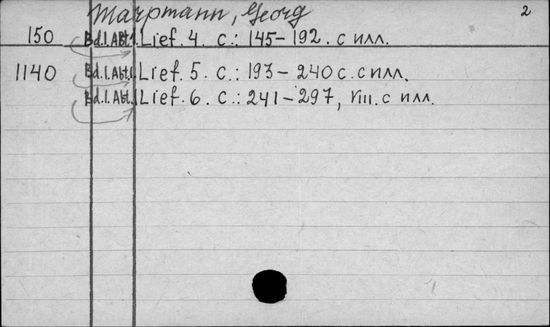 Marpmann, Georg 2
150 Bd.I.Abt.1. Lief. 4. с.: 145-192. с илл.
1140 Bd.I.Abt.1. Lief. 5. с.: 193-240 с. с илл.
Bd.I.Abt.1. Lief. 6. с.: 241-297, VIII. с илл.